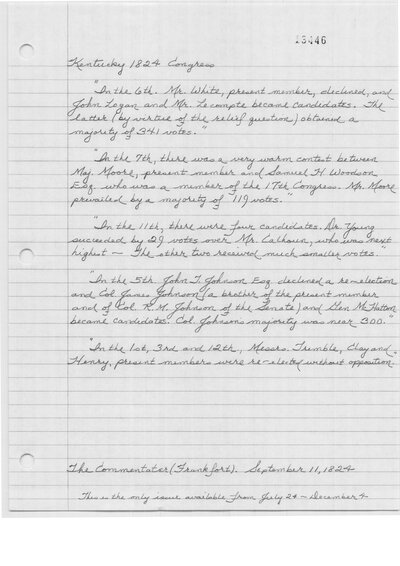 13446
Kentucky 1824 Congress
"In the 6th. Mr. White, present member, declined, and
John Logan and Mr. Lecompte became candidates. The
latter (by virtue of the relief question) obtained a
majority of 341 votes."
"In the 7th, there was a very warm contest between
Maj. Moore, present member and Samuel H Woodson
Esq. who was a member of the 17th Congress. Mr. Moore
prevailed by a majority of 119 votes."
"In the 11th, there were four candidates. Dr. Young
succeeded by 29 votes over Mr. Calhoun, who was next
highest — The other two received much smaller votes."
"In the 5th John T Johnson Esq declined a re-election
and Col James Johnson (a brother of the present member
and of Col. R. M. Johnson of the Senate) and Gen McHatton
became candidates. Col. Johnsons majority was near 300."
"In the 1st, 3rd and 12th, Messrs. Trimble, Clay and
Henry, present members were re-elected without opposition.
The Commentator (Frankfort). September 11, 1824
This is the only issue available from July 24 – December 4